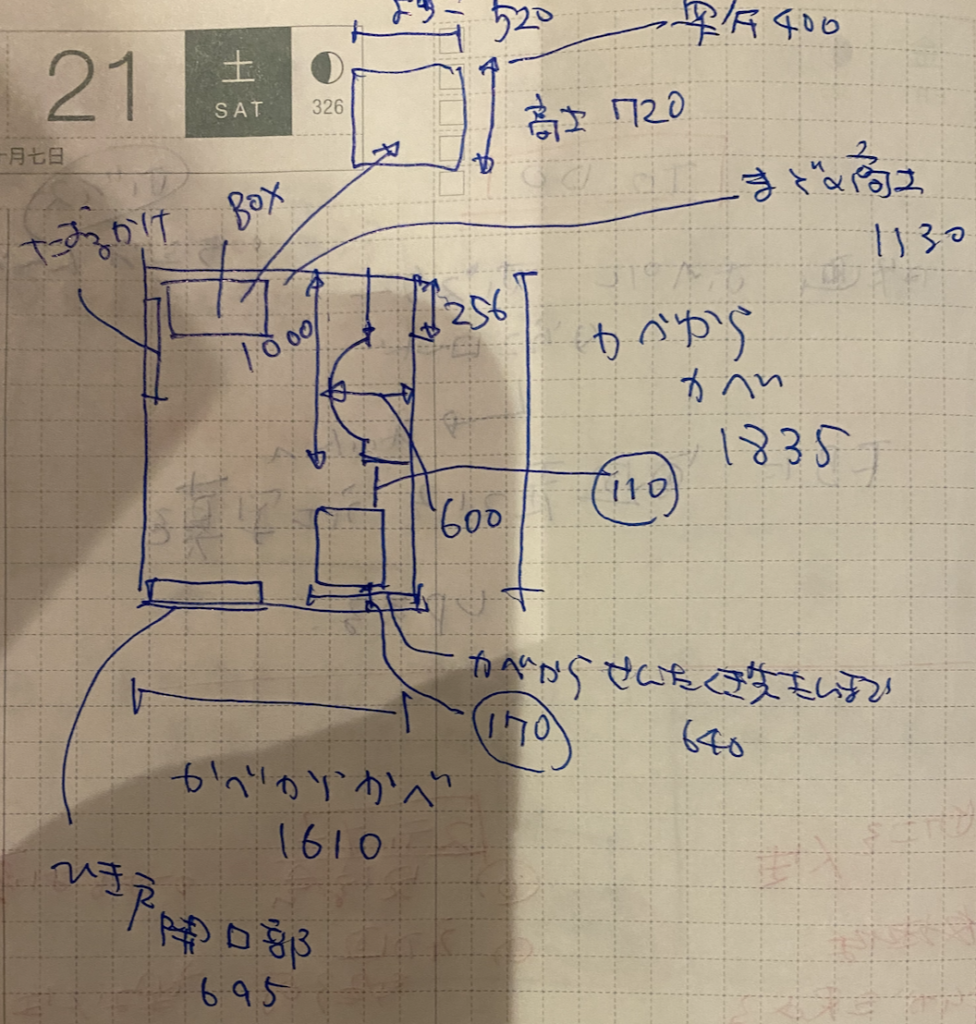 21
土
SAT
326
月七日
よこ 520
奥行 400
高さ 720
BOX
まどの高さ
1130
1000
256
かべから
かべ
1835
110
600
かべからせんたくき先まで
640
170
かべからかべ
1610
ひき戸
開口部
695